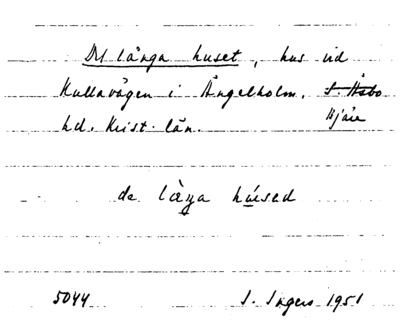 Det långa huset, hus vid
Kullavägen i Ängelholm. S. Åsbo
hd. Krist. län. Bjäre
de låŋa húsed
5044 I. Ingers 1951